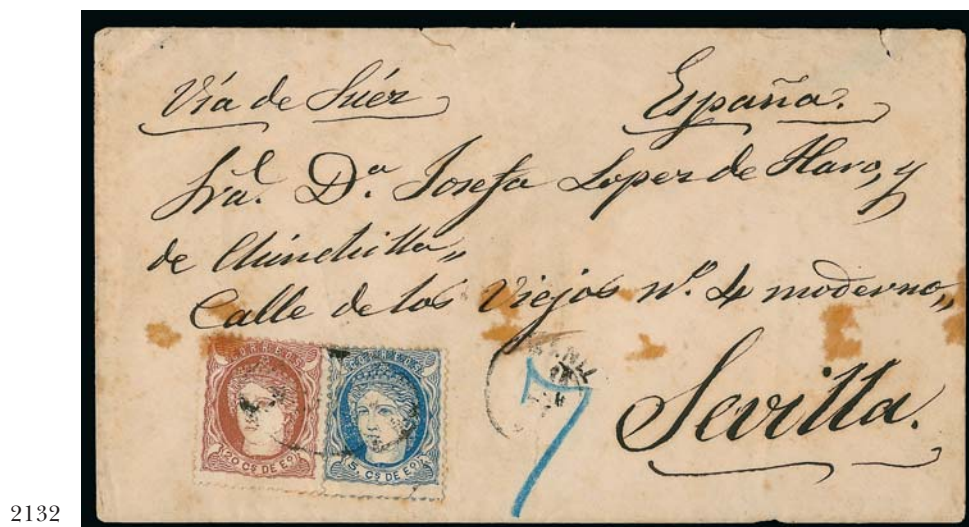 Vía de Súez España.
Sra. Dª. Josefa Lopez de Haro, y
de Chinchilla,,
Calle de los Viejos nº. 4 moderno,,
Sevilla.
7
CORREOS CORREOS
20 Cs DE Eo. 5, Cs DE Eo.
2132